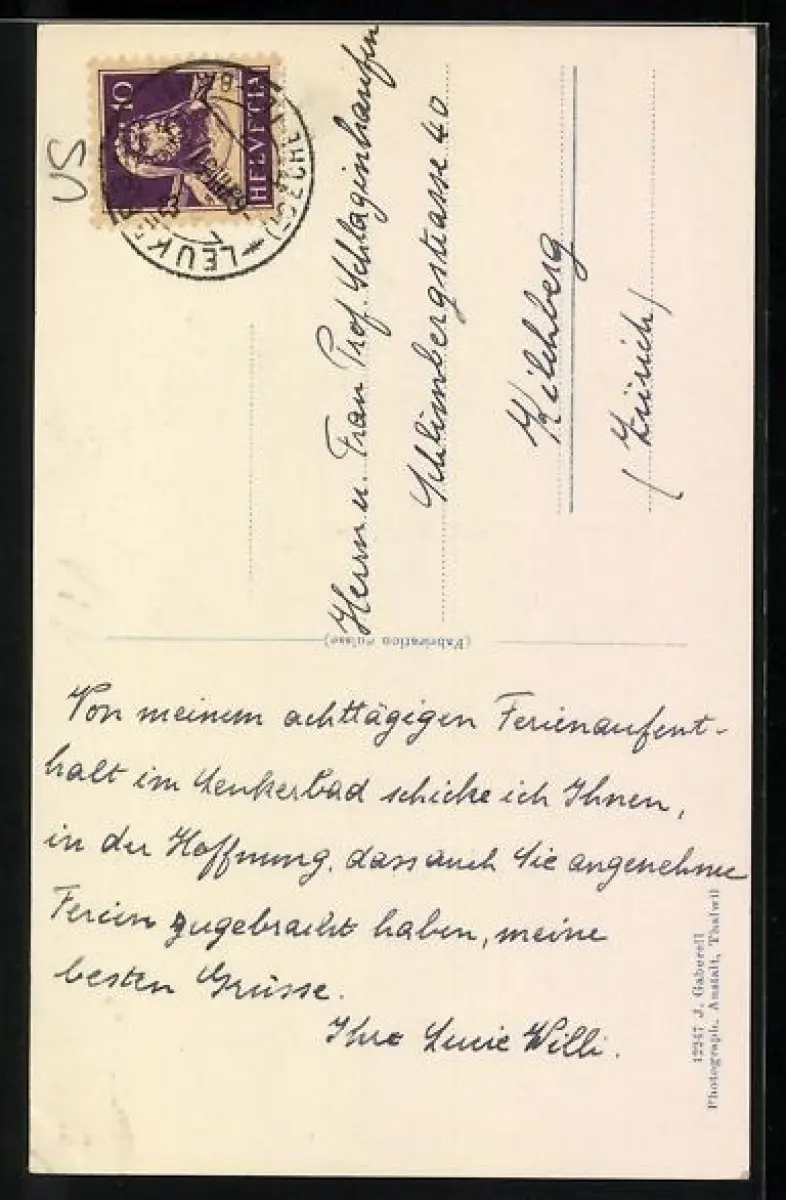 VS
10
HELVETIA
LEUK
Herrn u. Frau Prof. Schlaginhaufen
Schlimbergstrasse 40
Kilchberg
(Zürich)
(Fabrication Suisse)
Von meinem achttägigen Ferienaufent-
halt im Leukerbad schicke ich Ihnen,
in der Hoffnung, dass auch Sie angenehme
Ferien zugebracht haben, meine
besten Grüsse.
Ihre Lucie Willi.
12247 J. Gaberell
Photograph. Anstalt, Thalwil